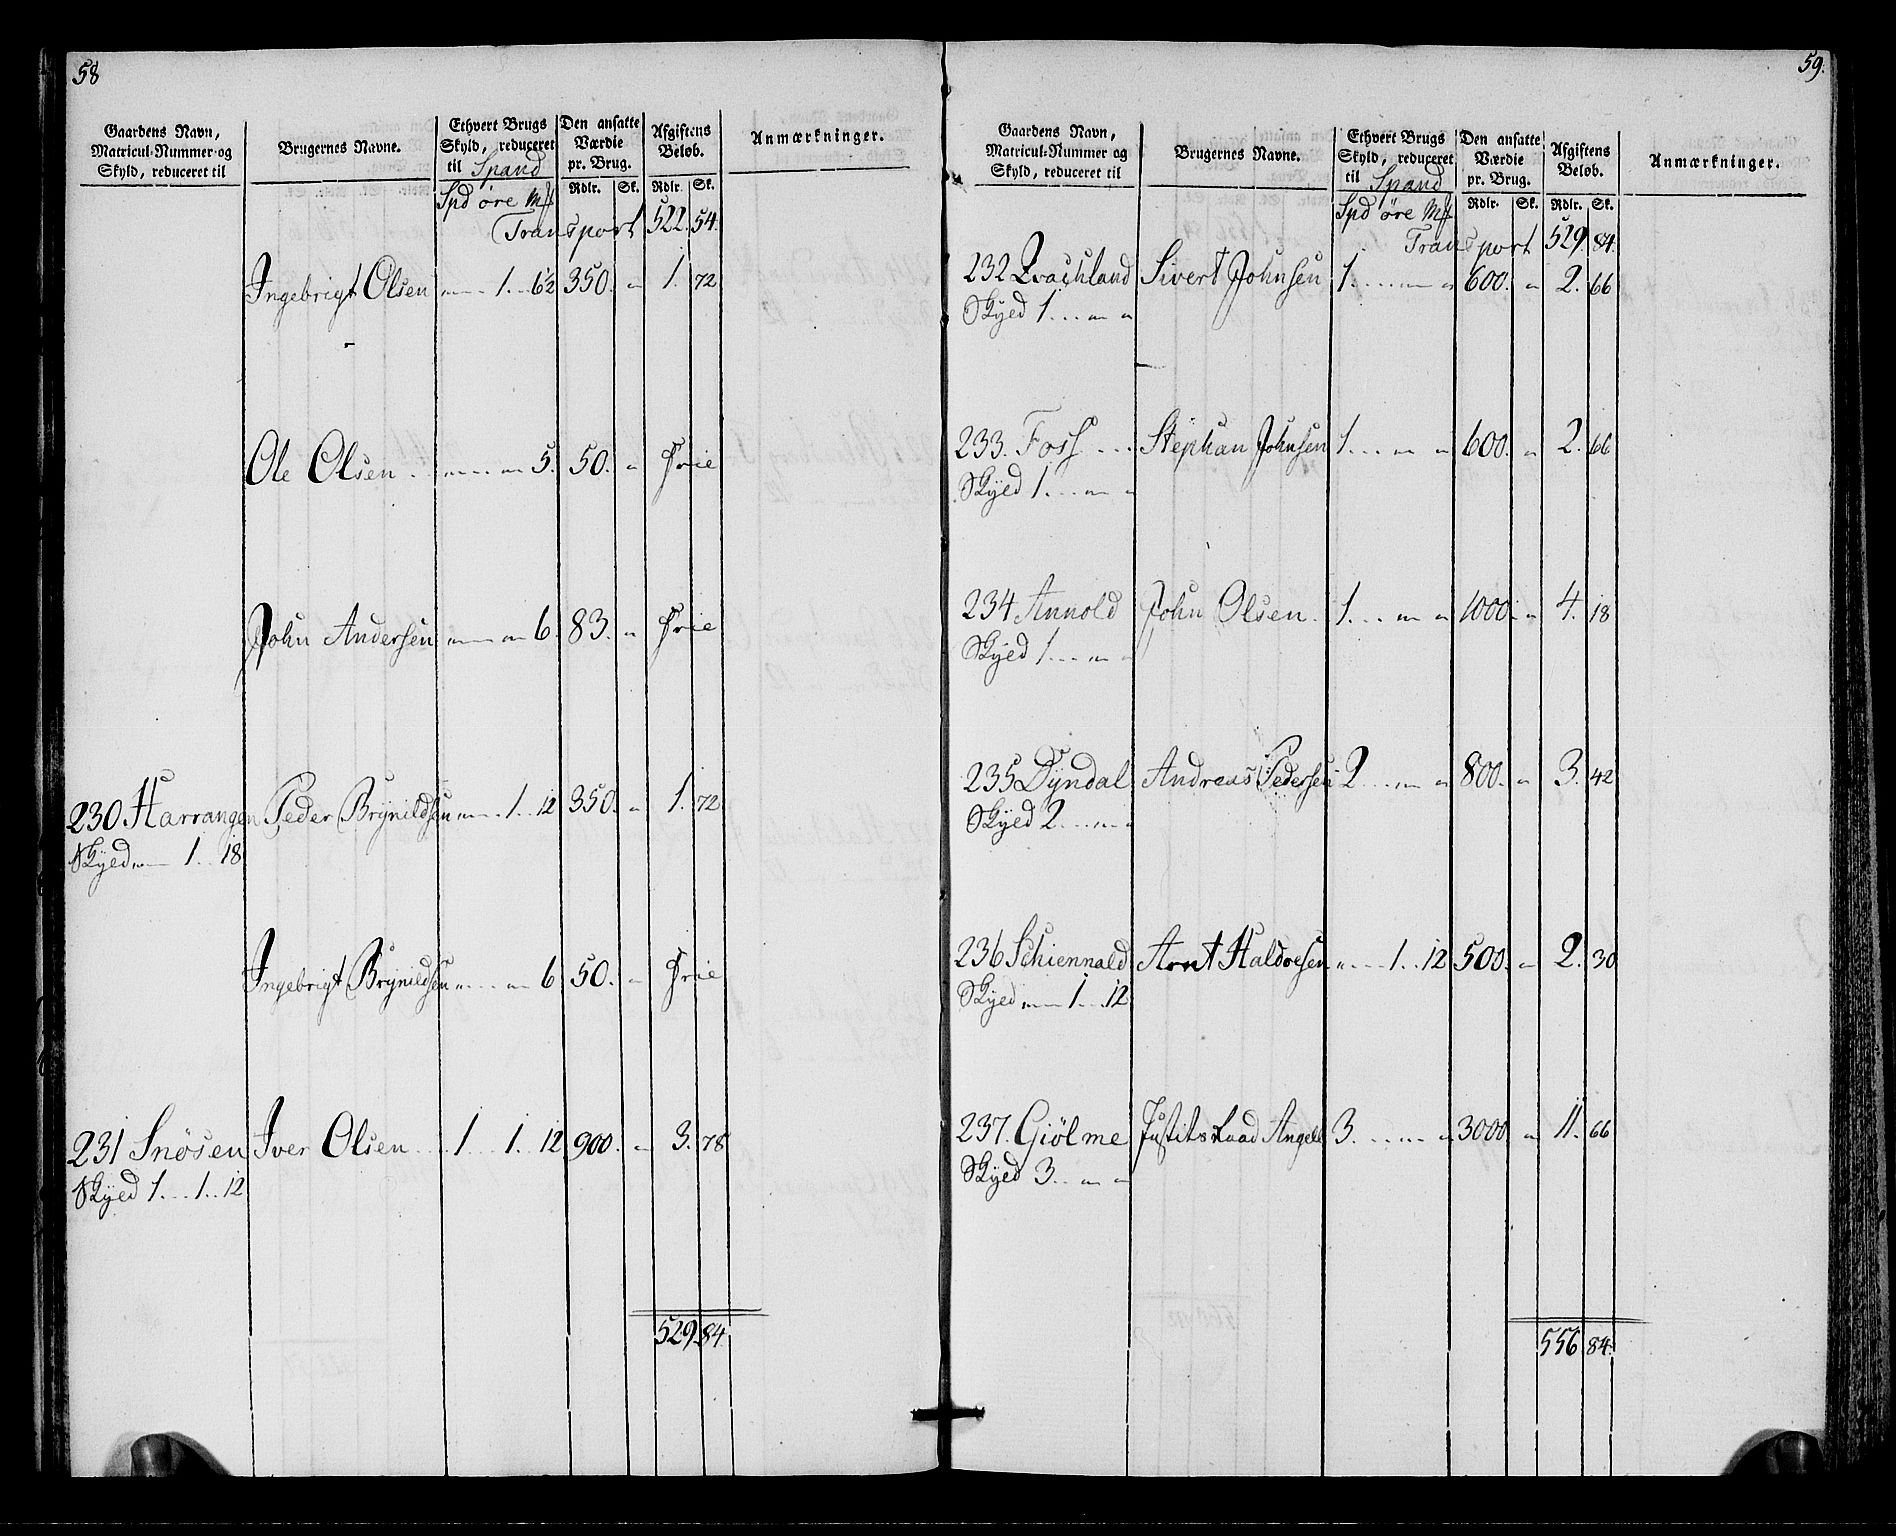 58
Gaardens Navn, Matricul-Nummer og Skyld, reduceret til
Brugernes Navne.
Ethvert Brugs Skyld, reduceret til Spand
Den ansatte Værdie pr. Brug.
Afgiftens Beløb.
Anmærkninger.
Spd øre Mk Rdlr. Sk. Rdlr. Sk.
Transport 522. 54.
Ingebrigt Olsen 1 6½ 350. " 1. 72
Ole Olsen 5. 50. " Frie
John Andersen 6. 83. " Frie
230 Harrangen Peder Brynildsen 1 12 350. " 1. 72
Skyed 1 18
Ingebrigt Brynildsen 6 50. " Frie
231 Snøsen Iver Olsen 1 1. 12 900. " 3. 78
Skyed 1 1 12
529. 84.
59.
Gaardens Navn, Matricul-Nummer og Skyld, reduceret til
Brugernes Navne.
Ethvert Brugs Skyld, reduceret til Spand
Den ansatte Værdie pr. Brug.
Afgiftens Beløb.
Anmærkninger.
Spd øre Mk Rdlr. Sk. Rdlr. Sk.
Transport 529. 84.
232 Sivert Johnsen 1 " " 600. " 2. 66
Skyed 1 " "
233. Foss Stephan Johnsen 1 " " 600. " 2. 66
Skyed 1 " "
234 Annold John Olsen 1 " " 1000. " 4. 18
Skyed 1 " "
235 Dyndal Andreas Pedersen 2 " " 800. " 3. 42
Skyed 2 " "
236 Schiennald Arnt Haldorsen " 1 12 500. " 2. 30
Skyed " 1 12
237. Giølme Justitsraad Angell 3 " " 3000 " 11. 66
Skyed 3 " "
556 84.